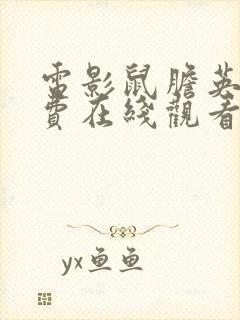 電影鼠膽英
費在綫觀看
yx鱼鱼